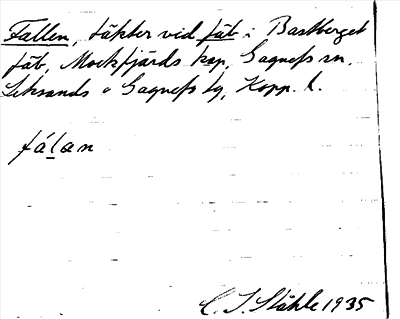 Fallen, täkter vid fäb i Bastberget
fäb, Mockfjärds kap, Gagnefs sn,
Leksands o Gagnefs tg, Kopp. l.
fálan
C. I. Ståhle 1935